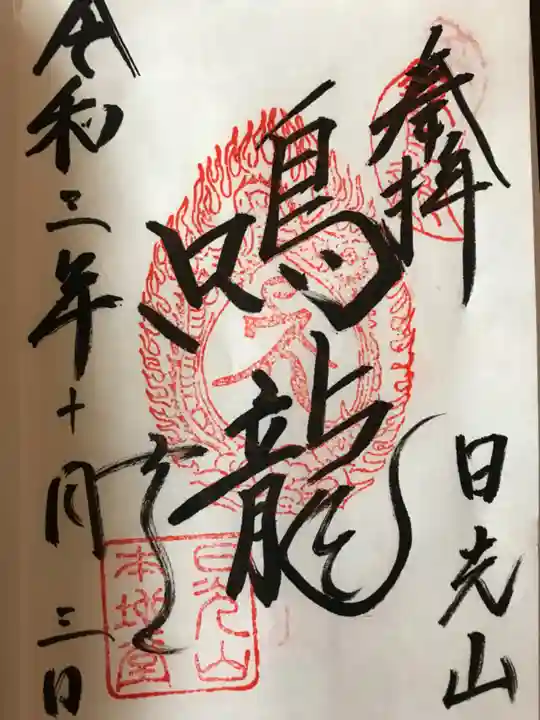 奉拝
日光山
鳴龍
令和三年十月三日
日光山
本地堂